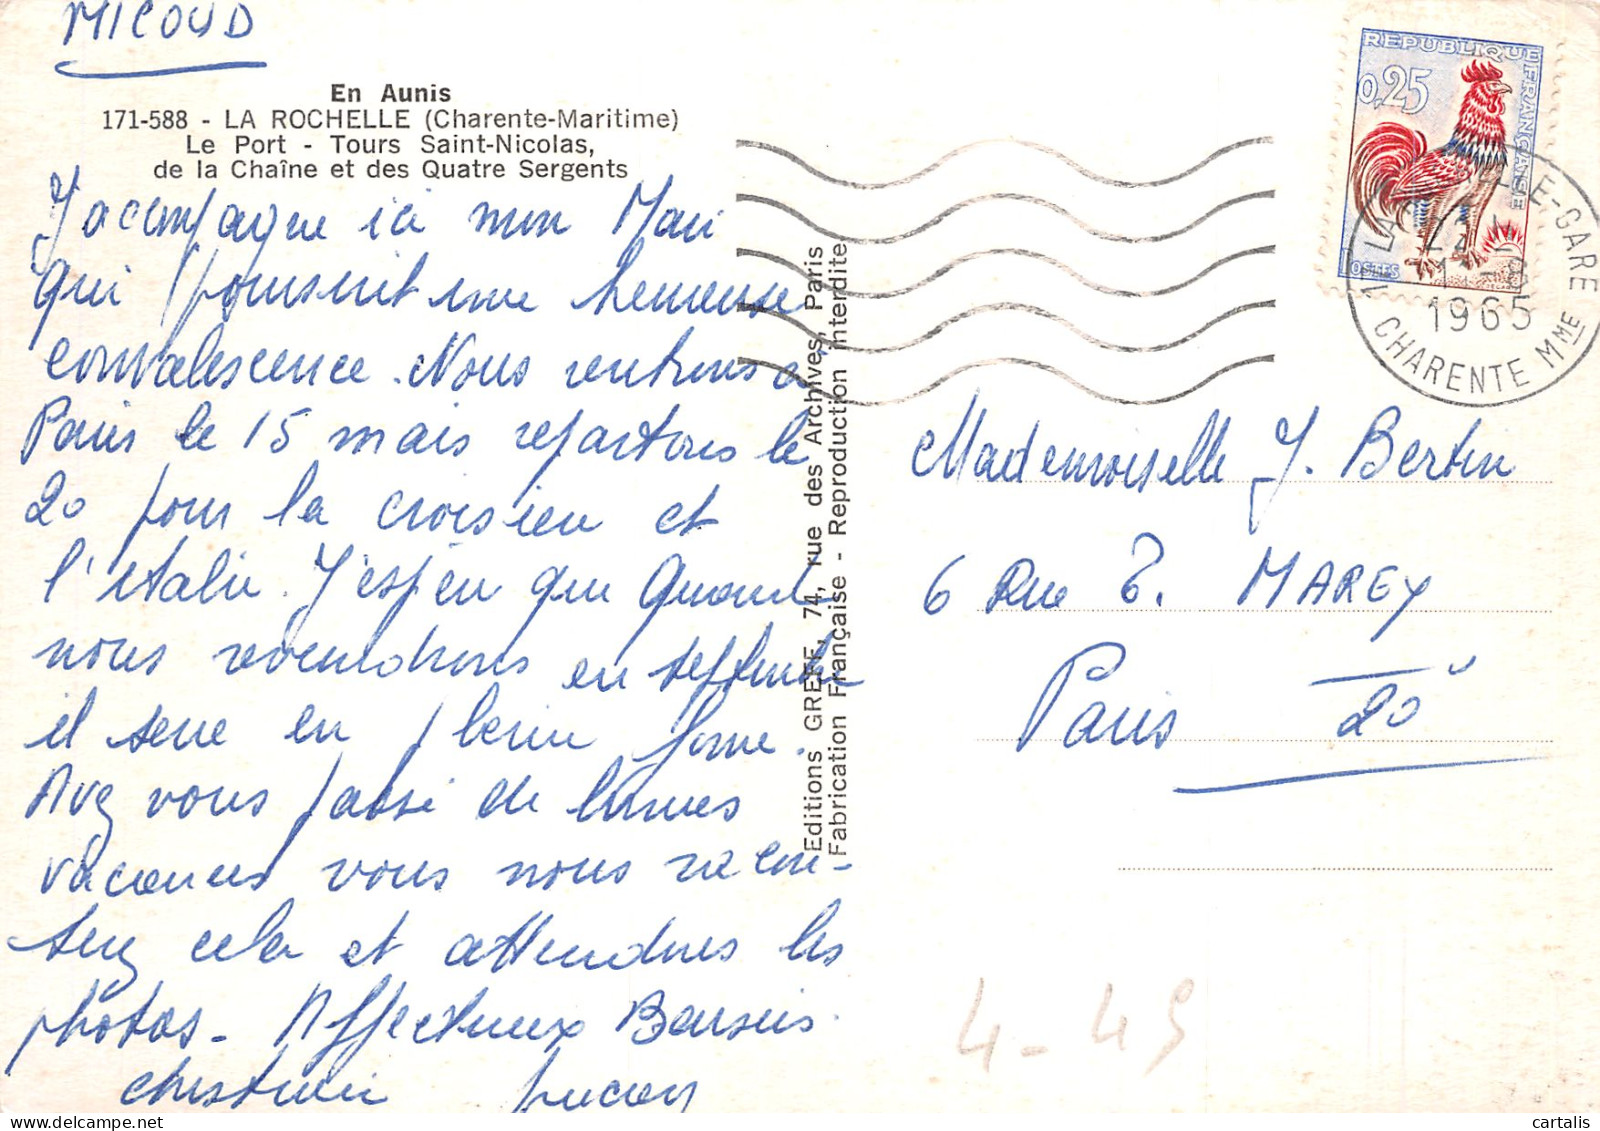 MICOUD
En Aunis
171-588 - LA ROCHELLE (Charente-Maritime)
Le Port - Tours Saint-Nicolas,
de la Chaîne et des Quatre Sergents
J'acompagne ici mon Mari
qui poursuit une heureuse
convalescence. Nous rentrons a
Paris le 15 mais repartons le
20 pour la croisien et
l'italie. J'espèr que Quand
nous reviendrons en septembre
il sera en pleine forme.
Avez vous passé de bonnes
vacances vous nous racon-
terez cela et attendons les
photos - Affectueux Baisers.
Christiane Lucien
Editions GREFF, 74, rue des Archives, Paris
Fabrication Française - Reproduction interdite
REPUBLIQUE FRANÇAISE
0,25
POSTES
LA ROCHELLE-GARE
1965
CHARENTE MME
Mademoiselle J. Bertin
6 Rue E. MAREY
Paris 20
4-49
cartalis